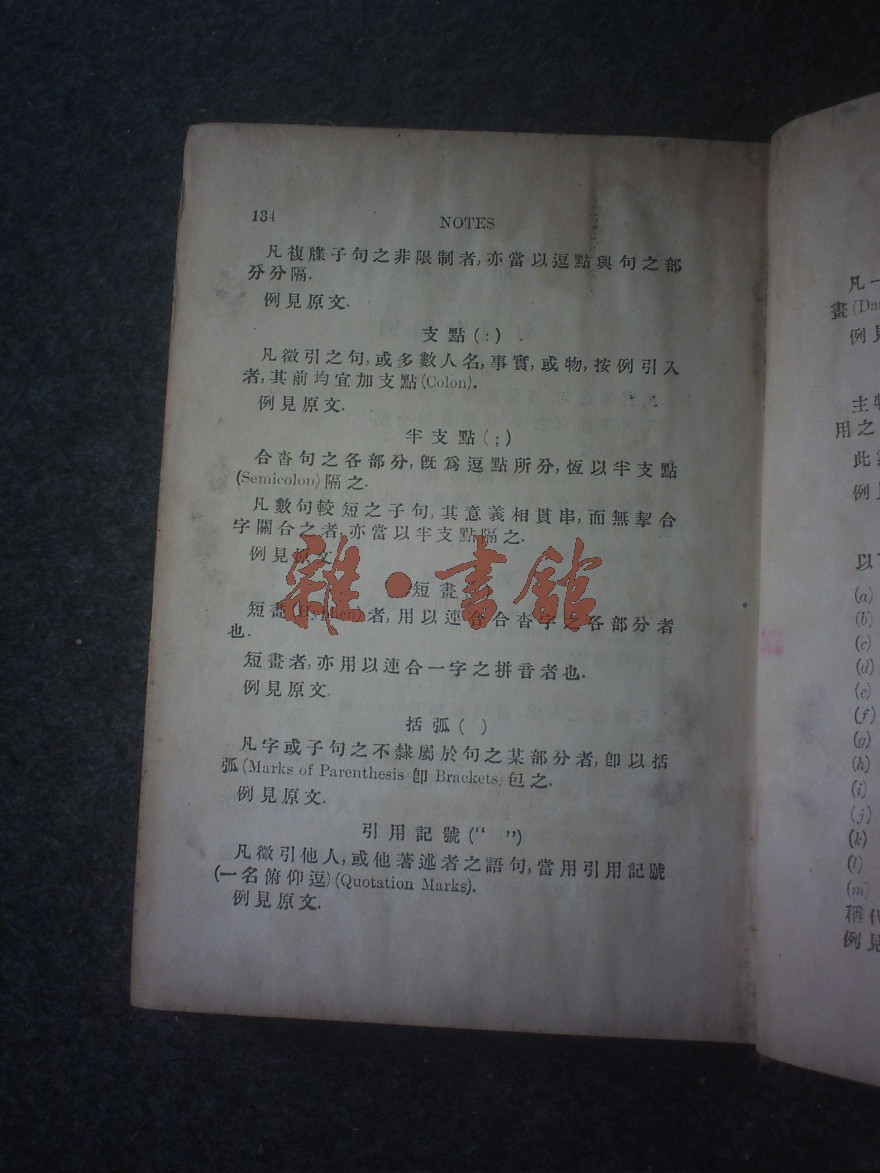 134
NOTES
凡複牒子句之非限制者,亦當以逗點與句之部
分分隔.
例見原文.
支點(:)
凡徵引之句,或多數人名,事實,或物,按例引入
者,其前均宜加支點(Colon).
例見原文.
半支點(;)
合沓句之各部分,旣爲逗點所分,恆以半支點
(Semicolon)隔之.
凡數句較短之子句,其意義相貫串,而無挈合
字關合之者,亦當以半支點隔之.
例見原文
短畫
短畫(Hyphen)者,用以連合合沓字之各部分者
也.
短畫者,亦用以連合一字之拼音者也.
例見原文.
括弧( )
凡字或子句之不隸屬於句之某部分者,卽以括
弧(Marks of Parenthesis 卽 Brackets)包之.
例見原文.
引用記號(“ ”)
凡徵引他人,或他著述者之語句,當用引用記號
(一名俯仰逗)(Quotation Marks).
例見原文.
雜·書館
凡一
畫(Da
例見
主物
用之
此
例見
以
(a)
(b)
(c)
(d)
(e)
(f)
(g)
(h)
(i)
(j)
(k)
(l)
(m)
稱代
例見